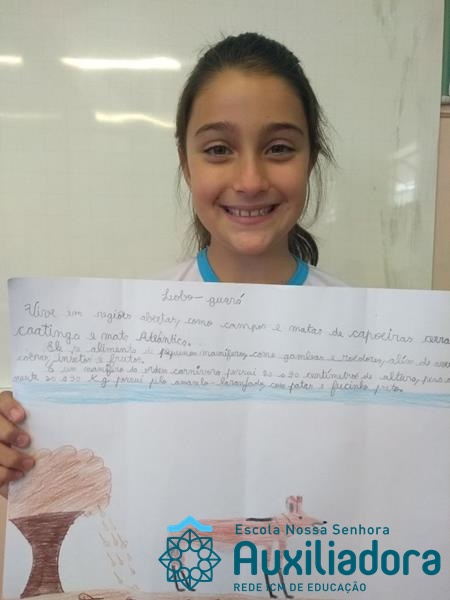 Lobo-guará
Vive em regiões abertas, como campos e matas de capoeiras, cerra
caatinga e mata Atlântica.
Ele se alimenta de pequenos mamíferos, como gambas e roedores, além de aves
cobras, insetos e frutos.
É um mamífero da ordem carnívora possui 80 a 90 centímetros de altura, pesa
mente 20 a 30 Kg possui pelo amarelo-laranjado, com patas e fucinho preto.
Escola Nossa Senhora
Auxiliadora
REDE ICM DE EDUCAÇÃO